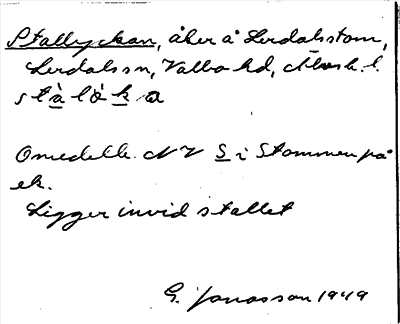 Stallyckan, åker å Lerdalsstom,
Lerdals sn, Valbo hd, Älvsb. l.
stàlòka
Omedelb. NV S i Stommen på
ek.
Ligger invid stallet
G. Jonasson 1949